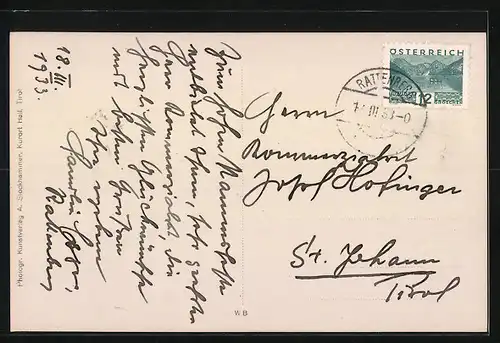 18. III.
1933.
Zum hohen Namensfeste
entbietet Ihnen, sehr geehrter
Herr Kommerzialrat, die
herzlichsten Glückwünsche
mit besten Grüßen
Ihr ergebener
Rattenberg
Photogr. Kunstverlag A. Stockhammer, Kurort Hall, Tirol
W B
ÖSTERREICH
12
GROSCHEN
RATTENBERG
III 33-0
Herrn
Kommerzialrat
Josef Hofinger
St. Johann
Tirol